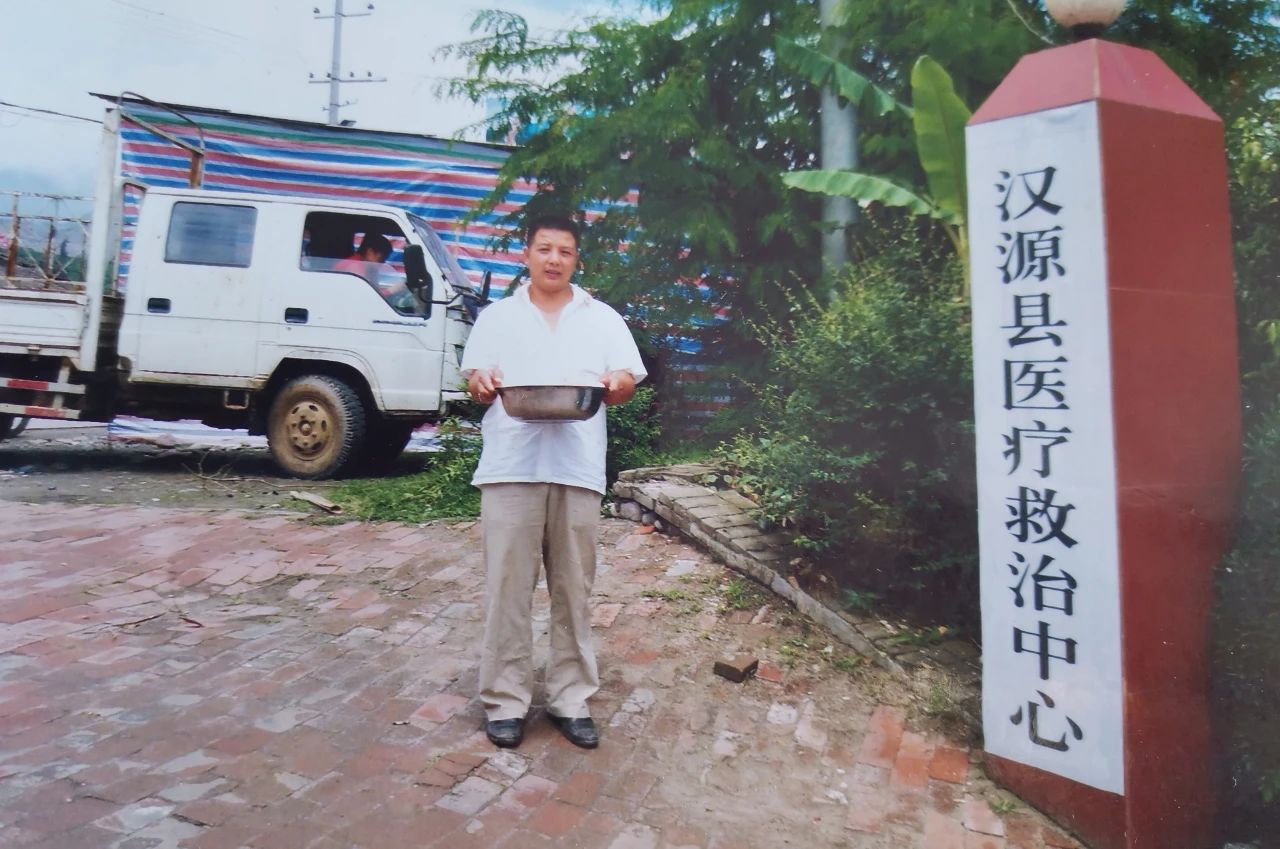 汉源县医疗救治中心